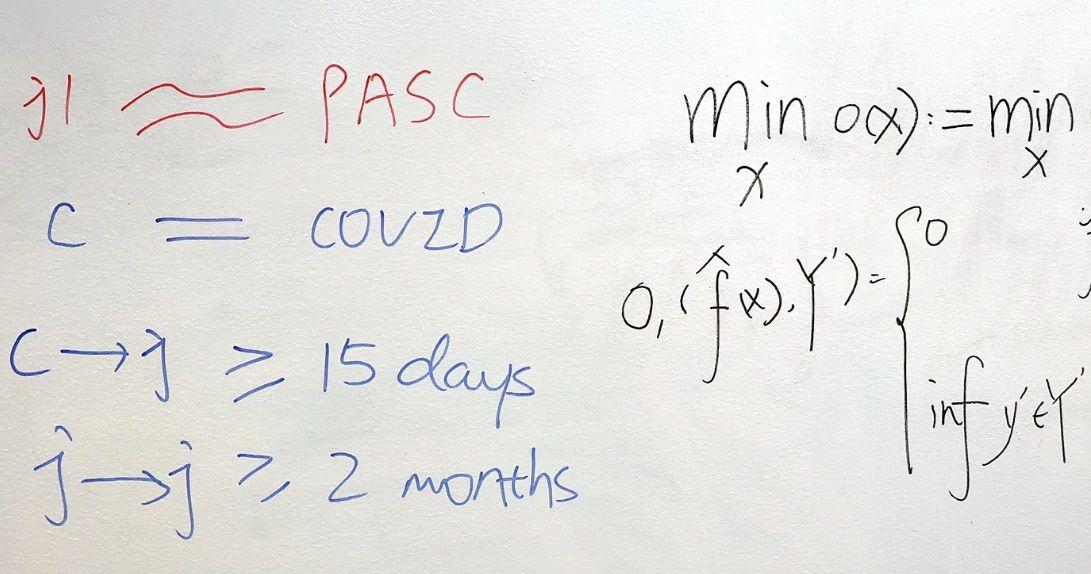 j1 ≈ PASC
C = COVID
C → j ≥ 15 days
j → j ≥ 2 months
min o(x) := min
x x
O₁(f̂(x), Y') = { 0
inf y' ∈ Y'